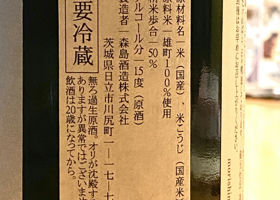 原材料名ー米（国産）、米こうじ（国産米）
原料米ー雄町100％使用
精米歩合ー50％
アルコール分ー15度（原酒）
製造者ー森島酒造株式会社
茨城県日立市川尻町1-17-7
要冷蔵
無ろ過生原酒。オリが沈殿する
ありますが異常ではございま
飲酒は20歳になってから。